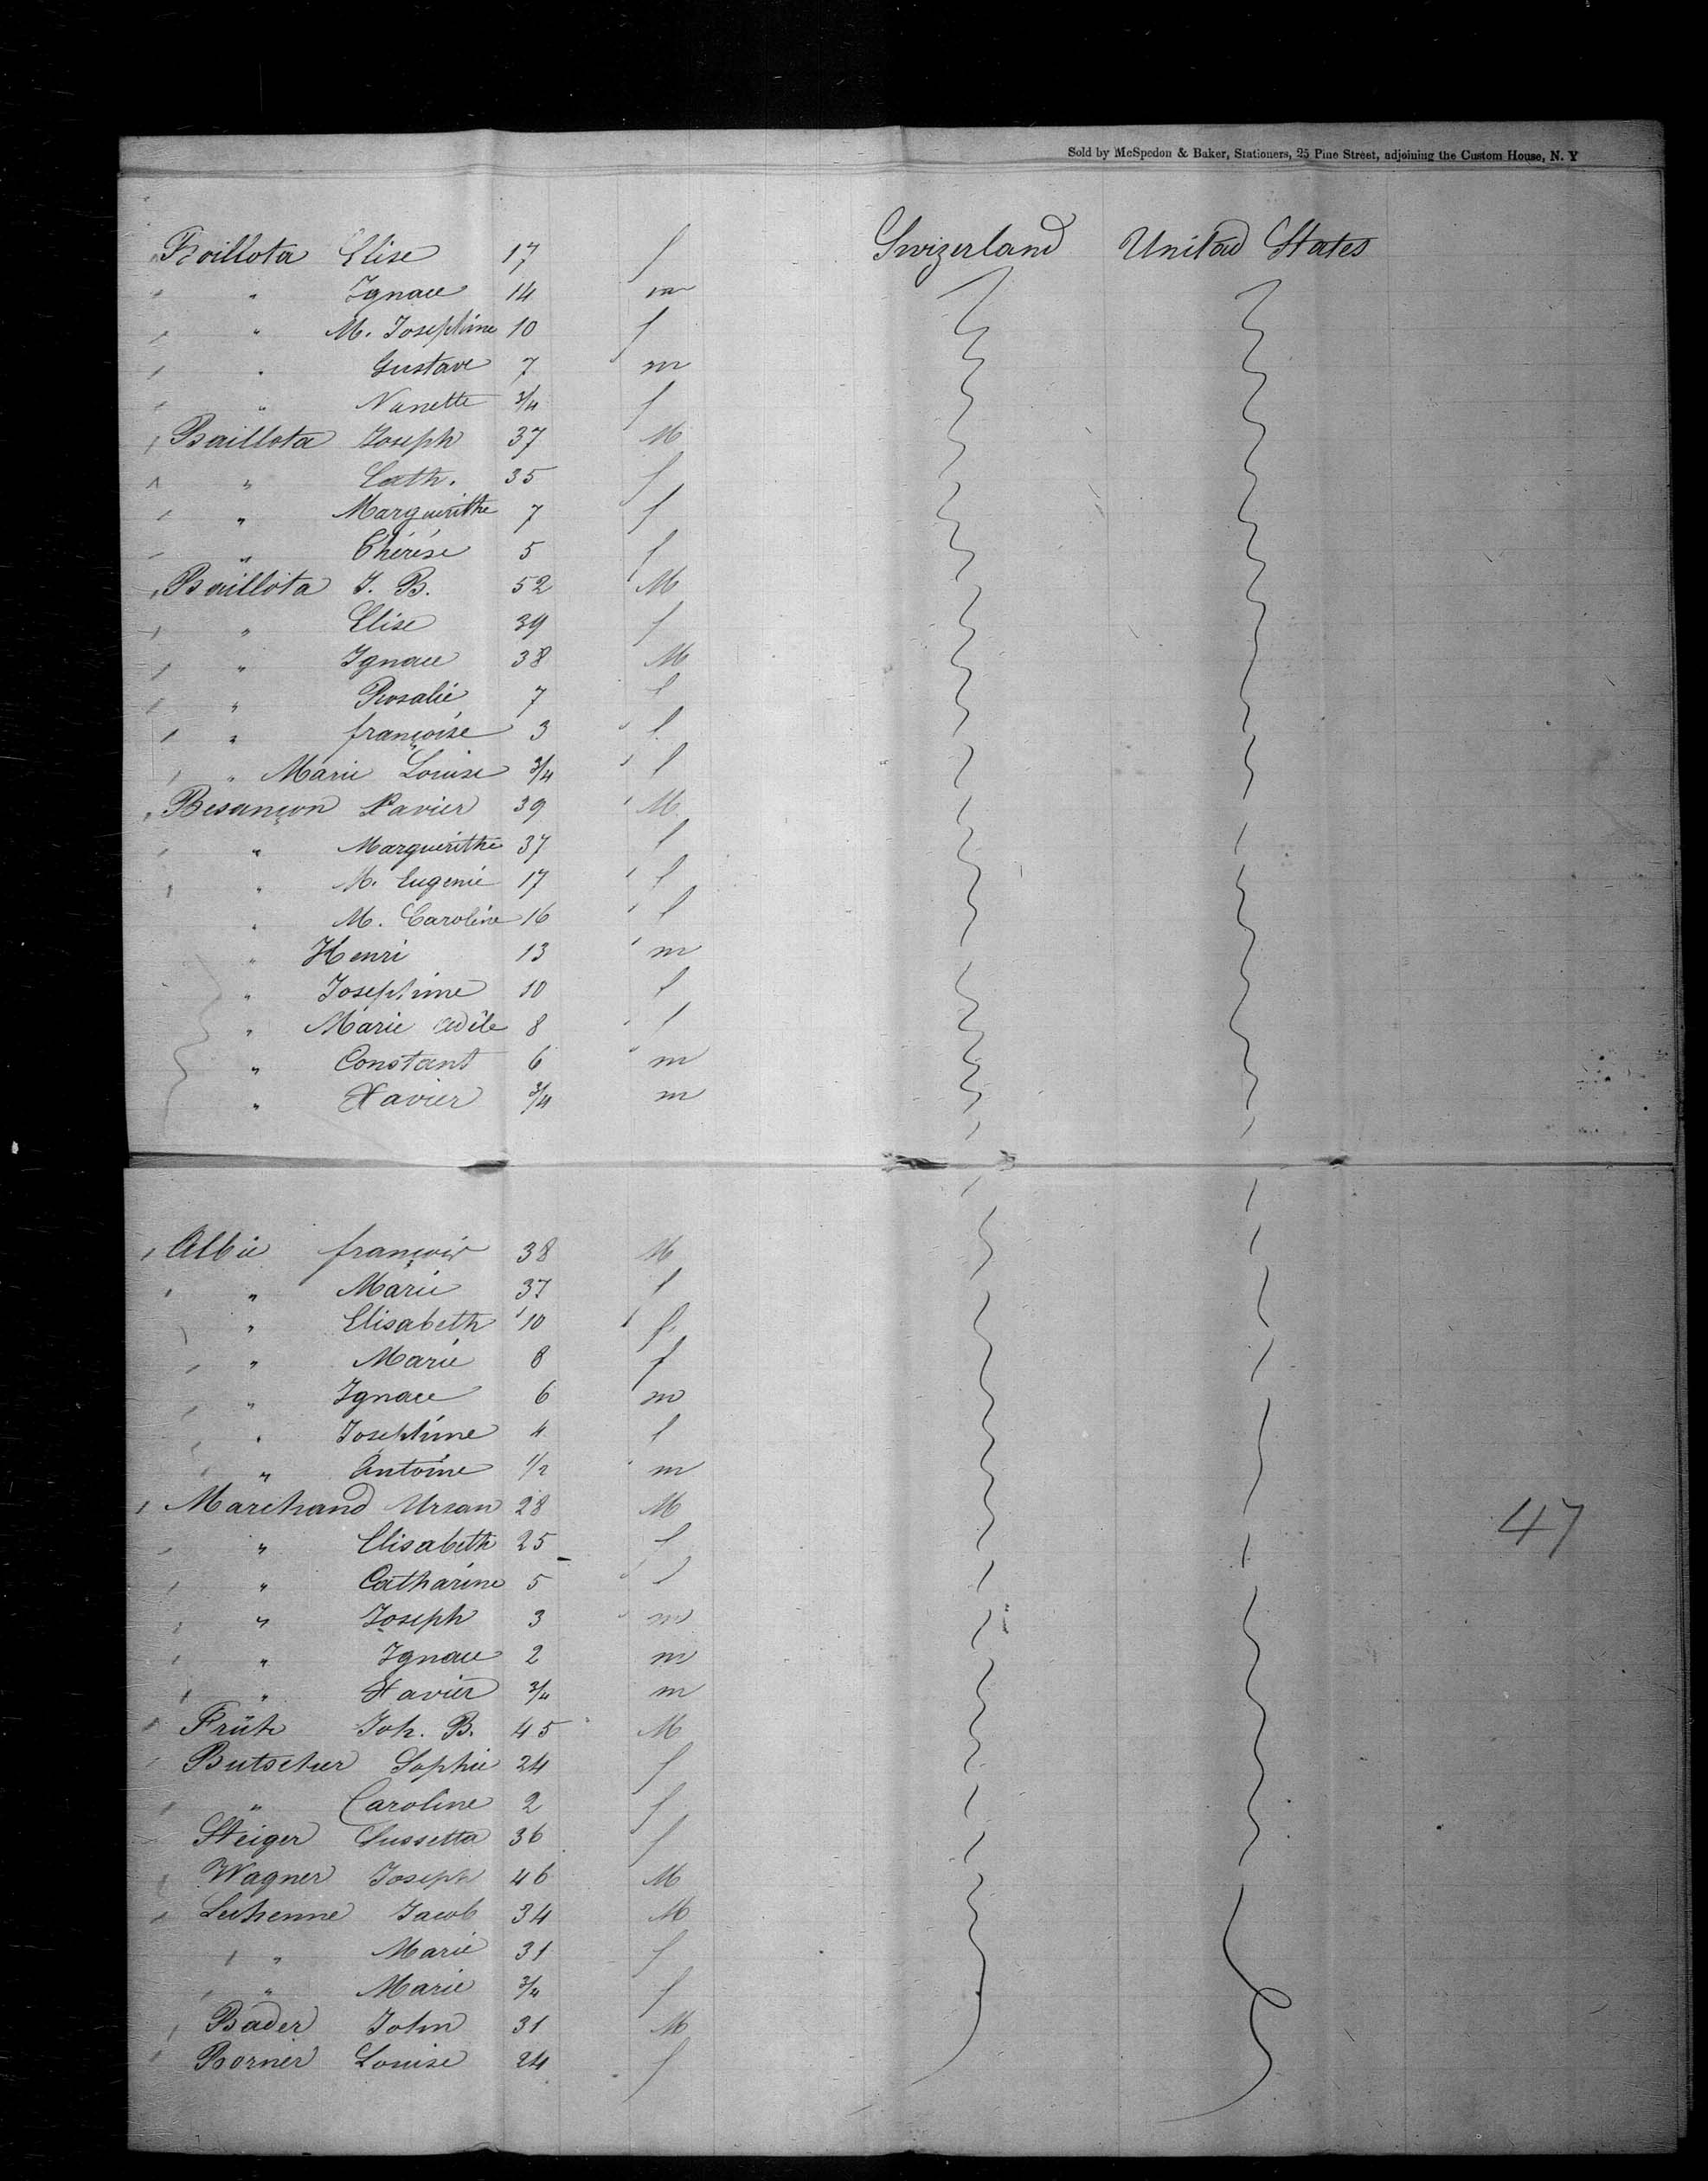 Sold by McSpedon & Baker, Stationers, 25 Pine Street, adjoining the Custom House, N. Y
Boillota Elise 17 f Swizerland United States
" Ignace 14 m
" M. Josephine 10 f
" Gustave 7 m
" Nanette 3/4 f
Baillota Joseph 37 M
" Cath. 35 f
" Marguerithe 7 f
" Thérése 5 f
Baillota J. B. 52 M
" Elise 39 f
" Ignace 38 M
" Rosalie 7 f
" françoise 3 f
" Marie Louise 3/4 f
Besançon Xavier 39 M
" Marguerithe 37 f
" M. Eugenie 17 f
" M. Caroline 16 f
" Henri 13 m
" Josephine 10 f
" Marie Adèle 8 f
" Constant 6 m
" Xavier 3/4 m
Albie françois 38 M
" Marie 37 f
" Elisabeth 10 f
" Marie 8 f
" Ignace 6 m
" Josephine 4 f
" Antoine 1/2 m
Marchand Ursan 28 M
" Elisabeth 25 f
" Catharine 5 f
" Joseph 3 m
" Ignace 2 m
" Xavier 3/4 m
47
Früh Joh. B. 45 M
Butscher Sophie 24 f
" Caroline 2 f
Steiger Sussetta 36 f
Wagner Joseph 46 M
Lechenne Jacob 34 M
" Marie 31 f
" Marie 3/4 f
Bader John 31 M
Borner Louise 24 f